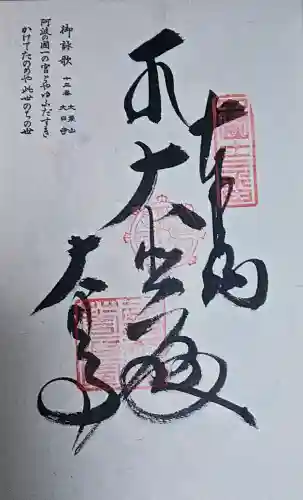 奉納
大悲殿
大日寺
御詠歌 十三番 大栗山 大日寺
阿波の國一の宮とやゆふだすき
かけてたのめや此世のちの世